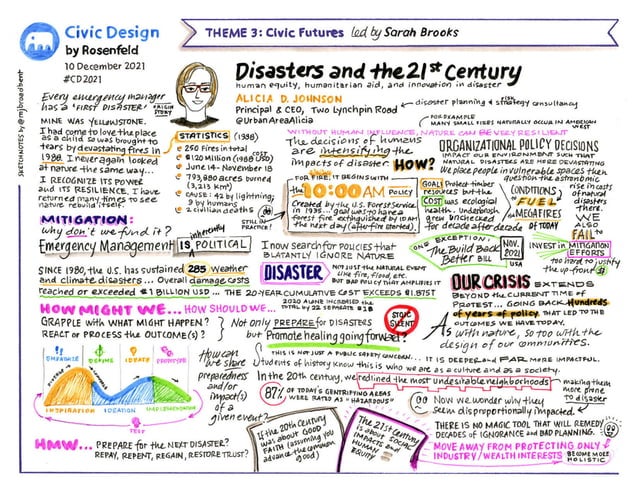 Civic Design
by Rosenfeld
10 December 2021
#CD2021
THEME 3: Civic Futures led by Sarah Brooks
Disasters and the 21st Century
human equity, humanitarian aid, and innovation in disaster
ALICIA D. JOHNSON
Principal & CEO, Two Lynchpin Road
@UrbanAreaAlicia
disaster planning & risk strategy consultancy
Every emergency manager
has a "FIRST DISASTER"
ORIGIN STORY
MINE WAS YELLOWSTONE.
I had come to love the place
as a child so was brought to
tears by devastating fires in
1988. I never again looked
at nature the same way...
I RECOGNIZE ITS POWER
and ITS RESILIENCE. I have
returned many times to see
nature rebuild itself.
STATISTICS (1988)
250 fires in total
$120 Million (1988 USD) COST
June 14 - November 18
793,880 acres burned
(3,213 Km²)
CAUSE: 42 by lightning;
9 by humans
2 civilian deaths
STILL IN PRACTICE!
WITHOUT HUMAN INFLUENCE, NATURE CAN BE VERY RESILIENT
FOR EXAMPLE
MANY SMALL FIRES NATURALLY OCCUR IN AMERICAN WEST
The decisions of humans
are intensifying the
impacts of disaster.
HOW?
FOR FIRE, IT BEGINS WITH
the 10:00 AM POLICY
Created by the U.S. Forest Service
in 1935... goal was to have a
forest fire extinguished by 10 AM
the next day (after fire started).
ORGANIZATIONAL POLICY DECISIONS
IMPACT OUR ENVIRONMENT SUCH THAT
NATURAL DISASTERS ARE MORE DEVASTATING
We place people in vulnerable spaces then
question the astronomic
rise in costs
of natural
disasters
there.
GOAL: Protect timber
resources but the
COST was ecological
health. Underbrush
grew unchecked
for decade after decade
CONDITIONS
to FUEL
MEGAFIRES
OF TODAY
WE
ALSO
FAIL to
INVEST in MITIGATION
EFFORTS
too hard to justify
the up-front $
MITIGATION:
why don't we fund it?
Emergency Management IS inherently POLITICAL
I now search for POLICIES THAT
BLATANTLY IGNORE NATURE
ONE EXCEPTION:
The Build Back
Better BILL
NOV. 2021
USA
SINCE 1980, the U.S. has sustained 285 weather
and climate disasters... Overall damage costs
reached or exceeded $1 BILLION USD... THE 20-YEAR CUMULATIVE COST EXCEEDS $1.875T
DISASTER
NOT JUST the NATURAL EVENT
like fire, flood, etc.
BUT BAD POLICY THAT AMPLIFIES IT
2020 ALONE INCREASED the
TOTAL by 22 SEPARATE $1B
OUR CRISIS EXTENDS
BEYOND the CURRENT TIME OF
PROTEST... GOING BACK Hundreds
of years of policy THAT LED TO THE
OUTCOMES WE HAVE TODAY.
As with nature, so too with the
design of our communities.
HOW MIGHT WE... HOW SHOULD WE...
GRAPPLE with WHAT MIGHT HAPPEN?
REACT or PROCESS the OUTCOME(s)?
Not only PREPARE for DISASTERS
but Promote healing going forward?
STOIC
SILENT
EMPATHIZE
DEFINE
IDEATE
PROTOTYPE
INSPIRATION
IDEATION
IMPLEMENTATION
TEST
How can
we share
preparedness
and/or
impact(s)
of a
given event?
THIS IS NOT JUST A PUBLIC SAFETY CONCERN... IT IS DEEPER and FAR MORE IMPACTFUL.
Students of history know this is who we are as a culture and as a society.
In the 20th century, we redlined the most undesirable neighborhoods
making them
more prone
to disaster
87% OF TODAY'S GENTRIFYING AREAS
WERE RATED AS "HAZARDOUS"
Now we wonder why they
seem disproportionally impacted.
If the 20th Century
was about GOOD
FAITH (assuming you
advance the common
good)
The 21st Century
is about
IMPACTS and
HUMAN
EQUITY
THERE IS NO MAGIC TOOL THAT WILL REMEDY
DECADES of IGNORANCE and BAD PLANNING.
MOVE AWAY FROM PROTECTING ONLY
INDUSTRY/WEALTH INTERESTS
BECOME MORE HOLISTIC
HMW... PREPARE for the NEXT DISASTER?
REPAY, REPENT, REGAIN, RESTORE TRUST?